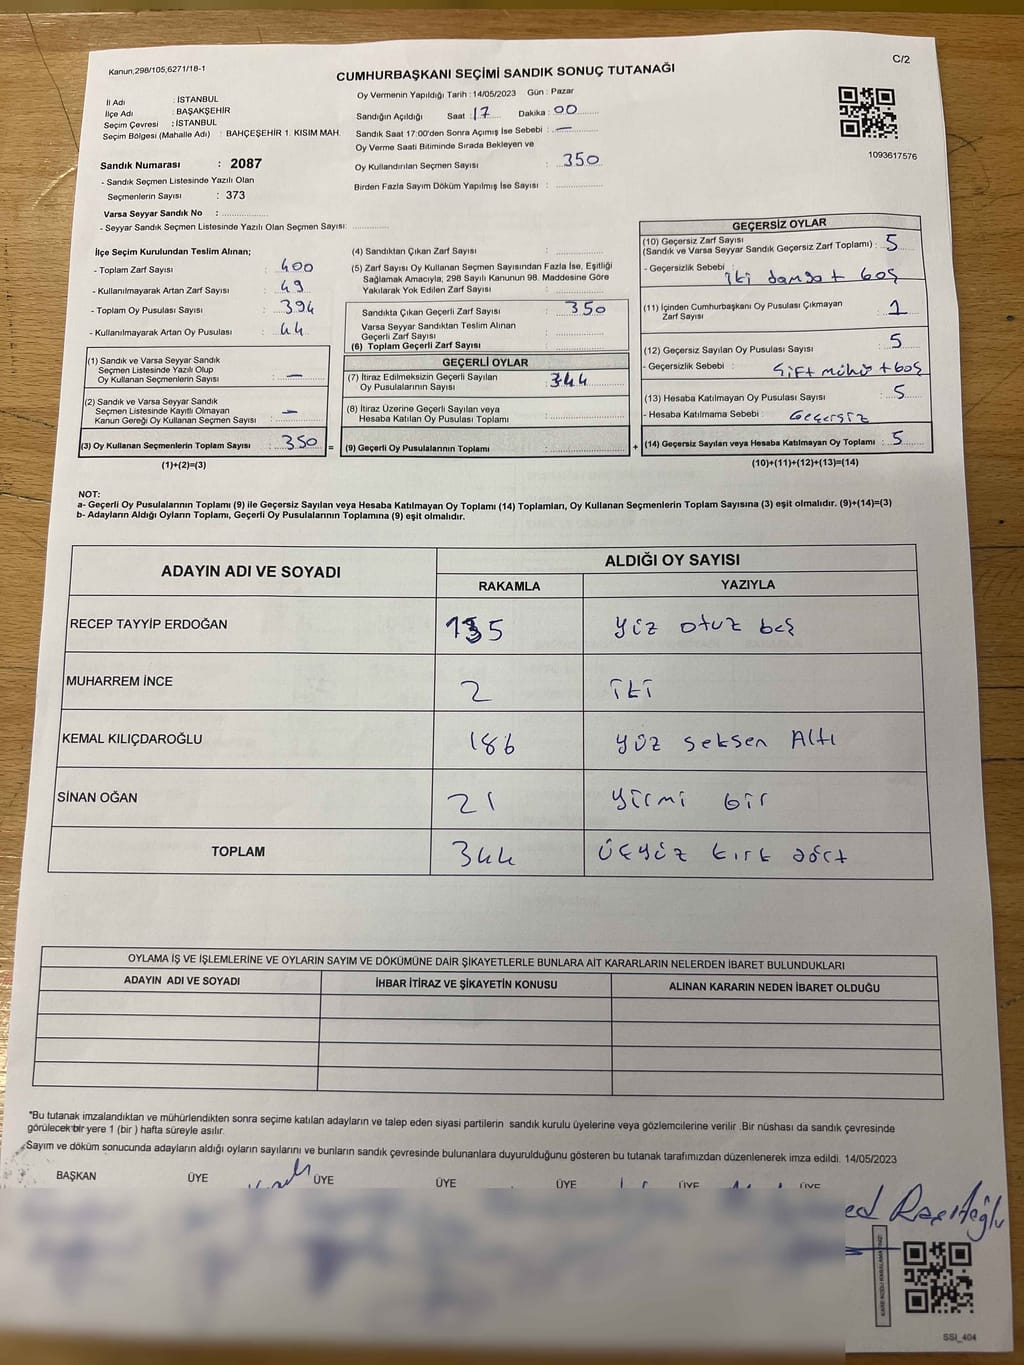 Kanun;298/105;6271/18-1
C/2
CUMHURBAŞKANI SEÇİMİ SANDIK SONUÇ TUTANAĞI
İl Adı : İSTANBUL
İlçe Adı : BAŞAKŞEHİR
Seçim Çevresi : İSTANBUL
Seçim Bölgesi (Mahalle Adı) : BAHÇEŞEHİR 1. KISIM MAH.
Sandık Numarası : 2087
- Sandık Seçmen Listesinde Yazılı Olan
Seçmenlerin Sayısı : 373
Varsa Seyyar Sandık No :
- Seyyar Sandık Seçmen Listesinde Yazılı Olan Seçmen Sayısı:
Oy Vermenin Yapıldığı Tarih : 14/05/2023 Gün : Pazar
Sandığın Açıldığı Saat : 17 Dakika : 00
Sandık Saat 17:00'den Sonra Açımış İse Sebebi : —
Oy Verme Saati Bitiminde Sırada Bekleyen ve
Oy Kullandırılan Seçmen Sayısı : 350
Birden Fazla Sayım Döküm Yapılmış İse Sayısı :
1093617576
İlçe Seçim Kurulundan Teslim Alınan;
- Toplam Zarf Sayısı : 400
- Kullanılmayarak Artan Zarf Sayısı : 49
- Toplam Oy Pusulası Sayısı : 394
- Kullanılmayarak Artan Oy Pusulası : 44
(1) Sandık ve Varsa Seyyar Sandık
Seçmen Listesinde Yazılı Olup
Oy Kullanan Seçmenlerin Sayısı : —
(2) Sandık ve Varsa Seyyar Sandık
Seçmen Listesinde Kayıtlı Olmayan
Kanun Gereği Oy Kullanan Seçmen Sayısı : —
(3) Oy Kullanan Seçmenlerin Toplam Sayısı : 350 =
(1)+(2)=(3)
(4) Sandıktan Çıkan Zarf Sayısı :
(5) Zarf Sayısı Oy Kullanan Seçmen Sayısından Fazla İse, Eşitliği
Sağlamak Amacıyla; 298 Sayılı Kanunun 98. Maddesine Göre
Yakılarak Yok Edilen Zarf Sayısı :
Sandıkta Çıkan Geçerli Zarf Sayısı : 350
Varsa Seyyar Sandıktan Teslim Alınan
Geçerli Zarf Sayısı :
(6) Toplam Geçerli Zarf Sayısı :
GEÇERLİ OYLAR
(7) İtiraz Edilmeksizin Geçerli Sayılan
Oy Pusulalarının Sayısı : 344
(8) İtiraz Üzerine Geçerli Sayılan veya
Hesaba Katılan Oy Pusulası Toplamı :
(9) Geçerli Oy Pusulalarının Toplamı : +
GEÇERSİZ OYLAR
(10) Geçersiz Zarf Sayısı
(Sandık ve Varsa Seyyar Sandık Geçersiz Zarf Toplamı) : 5
- Geçersizlik Sebebi :
iki damga + boş
(11) İçinden Cumhurbaşkanı Oy Pusulası Çıkmayan
Zarf Sayısı : 1
(12) Geçersiz Sayılan Oy Pusulası Sayısı : 5
- Geçersizlik Sebebi : çift mühü + boş
(13) Hesaba Katılmayan Oy Pusulası Sayısı : 5
- Hesaba Katılmama Sebebi : Geçersiz
(14) Geçersiz Sayılan veya Hesaba Katılmayan Oy Toplamı : 5
(10)+(11)+(12)+(13)=(14)
NOT:
a- Geçerli Oy Pusulalarının Toplamı (9) ile Geçersiz Sayılan veya Hesaba Katılmayan Oy Toplamı (14) Toplamları, Oy Kullanan Seçmenlerin Toplam Sayısına (3) eşit olmalıdır. (9)+(14)=(3)
b- Adayların Aldığı Oyların Toplamı, Geçerli Oy Pusulalarının Toplamına (9) eşit olmalıdır.
ADAYIN ADI VE SOYADI
ALDIĞI OY SAYISI
RAKAMLA YAZIYLA
RECEP TAYYİP ERDOĞAN 135 yüz otuz beş
MUHARREM İNCE 2 iki
KEMAL KILIÇDAROĞLU 186 yüz seksen Altı
SİNAN OĞAN 21 yirmi bir
TOPLAM 344 üçyüz kırk dört
OYLAMA İŞ VE İŞLEMLERİNE VE OYLARIN SAYIM VE DÖKÜMÜNE DAİR ŞİKAYETLERLE BUNLARA AİT KARARLARIN NELERDEN İBARET BULUNDUKLARI
ADAYIN ADI VE SOYADI İHBAR İTİRAZ VE ŞİKAYETİN KONUSU ALINAN KARARIN NEDEN İBARET OLDUĞU
*Bu tutanak imzalandıktan ve mühürlendikten sonra seçime katılan adayların ve talep eden siyasi partilerin sandık kurulu üyelerine veya gözlemcilerine verilir .Bir nüshası da sandık çevresinde
görülecek bir yere 1 (bir ) hafta süreyle asılır.
Sayım ve döküm sonucunda adayların aldığı oyların sayılarını ve bunların sandık çevresinde bulunanlara duyurulduğunu gösteren bu tutanak tarafımızdan düzenlenerek imza edildi. 14/05/2023
BAŞKAN ÜYE ÜYE ÜYE ÜYE ÜYE ÜYE
SSI_404